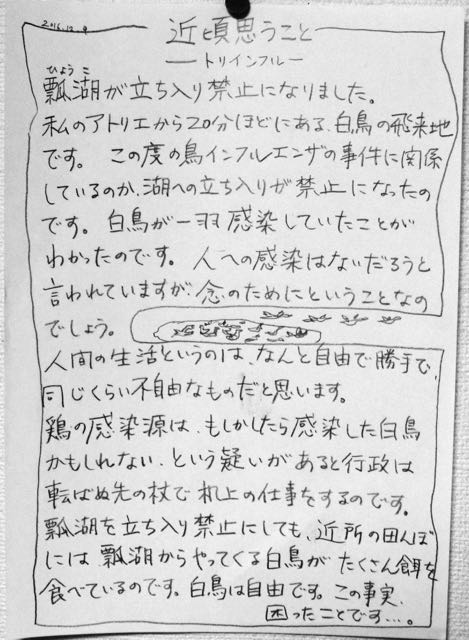 2016.12.9
近頃思うこと
―トリインフルー
ひょうこ
瓢湖が立ち入り禁止になりました。
私のアトリエから20分ほどにある、白鳥の飛来地
です。この度の鳥インフルエンザの事件に関係
しているのか、湖への立ち入りが禁止になったの
です。白鳥が一羽感染していたことが
わかったのです。人への感染はないだろうと
言われていますが、念のためにということなの
でしょう。
人間の生活というのは、なんと自由で勝手で、
同じくらい不自由なものだと思います。
鶏の感染源は、もしかしたら感染した白鳥
かもしれない、という疑いがあると行政は
転ばぬ先の杖で机上の仕事をするのです。
瓢湖を立ち入り禁止にしても、近所の田んぼ
には瓢湖からやってくる白鳥がたくさん餌を
食べているのです。白鳥は自由です。この事実、
困ったことです…。